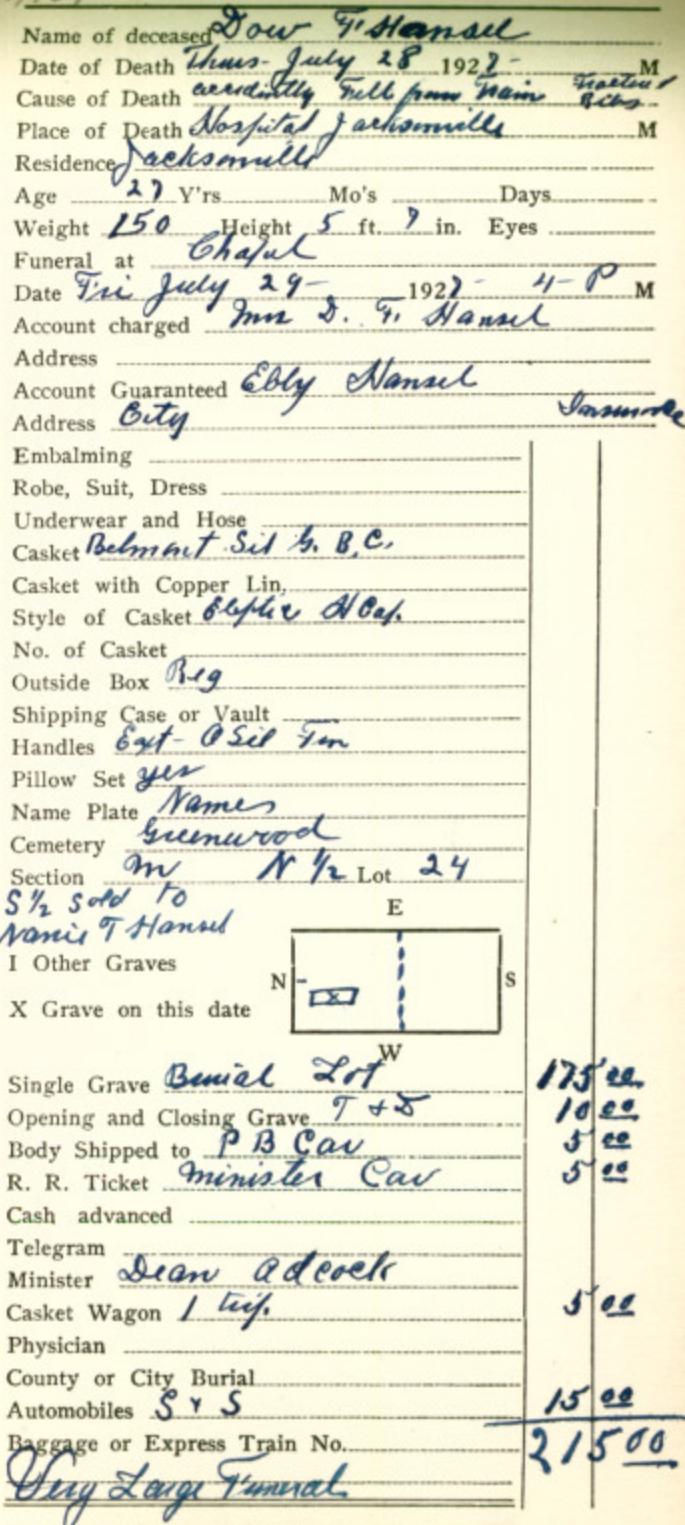 Name of deceased Dow F. Hansel
Date of Death Thurs- July 28 1927- M
Cause of Death accidently Fell from Train Fractured Ribs
Place of Death Hospital Jacksonville M
Residence Jacksonville
Age 27 Y'rs Mo's Days
Weight 150 Height 5 ft. 7 in. Eyes
Funeral at Chapel
Date Fri July 29- 1927- 4- P M
Account charged Mrs D. F. Hansel
Address
Account Guaranteed Ebby Hansel
Address City Insurance
Embalming
Robe, Suit, Dress
Underwear and Hose
Casket Belmont Sil G. B. C.
Casket with Copper Lin.
Style of Casket H Cap.
No. of Casket
Outside Box Reg
Shipping Case or Vault
Handles Ext- Sil
Pillow Set yes
Name Plate Names
Cemetery Greenwood
Section M N 1/2 Lot 24
S 1/2 Sold to
Nanie T Hansel
E
I Other Graves
N S
X
X Grave on this date
W
Single Grave Burial Lot 175 00
Opening and Closing Grave T & D 10 00
Body Shipped to P B Car 5 00
R. R. Ticket Minister Car 5 00
Cash advanced
Telegram
Minister Dean Adcock
Casket Wagon 1 trip. 5 00
Physician
County or City Burial
Automobiles S & S 15 00
Baggage or Express Train No. 215 00
Very Large Funeral